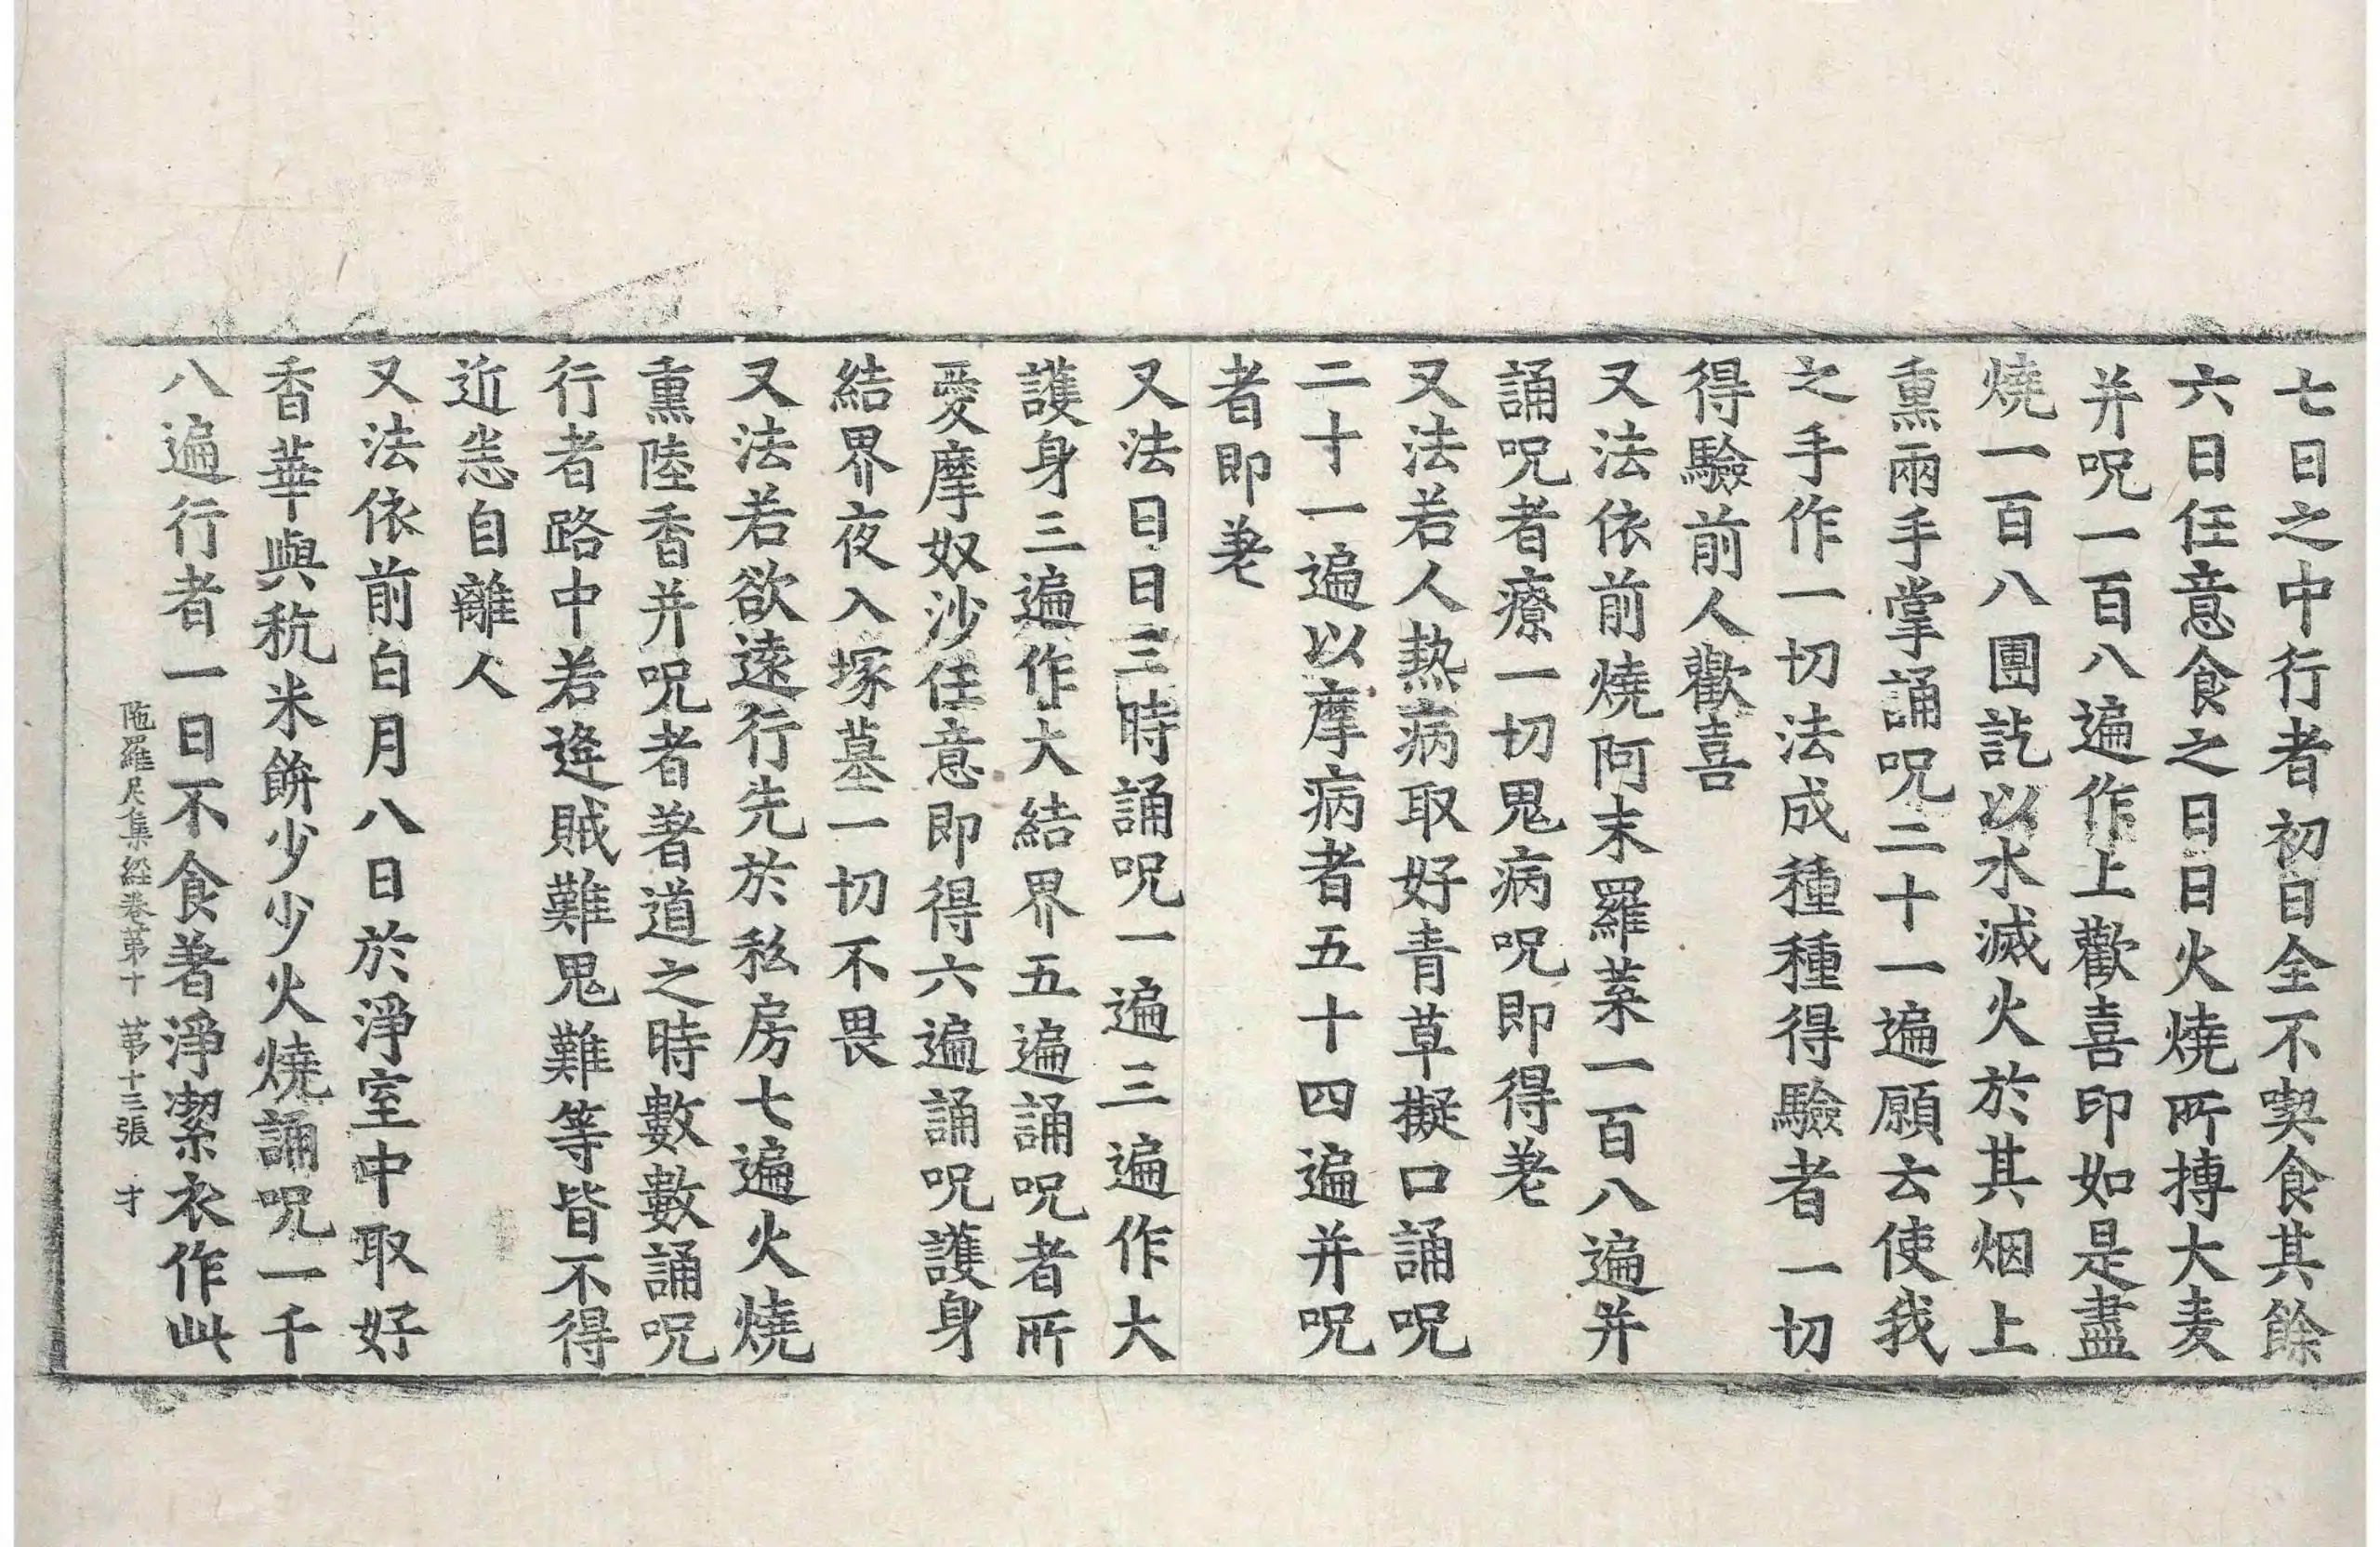 七日之中行者初日全不喫食其餘
六日任意食之日日火燒所摶大麦
并呪一百八遍作上歡喜印如是盡
燒一百八團訖以水滅火於其烟上
熏兩手掌誦呪二十一遍願云使我
之手作一切法成種種得驗者一切
得驗前人歡喜
又法依前燒阿末羅菜一百八遍并
誦呪者療一切鬼病呪即得差
又法若人熱病取好青草擬口誦呪
二十一遍以摩病者五十四遍并呪
者即差
又法日日三時誦呪一遍三遍作大
護身三遍作大結界五遍誦呪者所
愛摩奴沙任意即得六遍誦呪護身
結界夜入塚墓一切不畏
又法若欲遠行先於私房七遍火燒
熏陸香并呪者著道之時數數誦呪
行者路中若逢賊難鬼難等皆不得
近恙自離人
又法依前白月八日於淨室中取好
香華與秔米餅少少火燒誦呪一千
八遍行者一日不食著淨潔衣作此
陁羅尼集經卷第十 第十三張 才